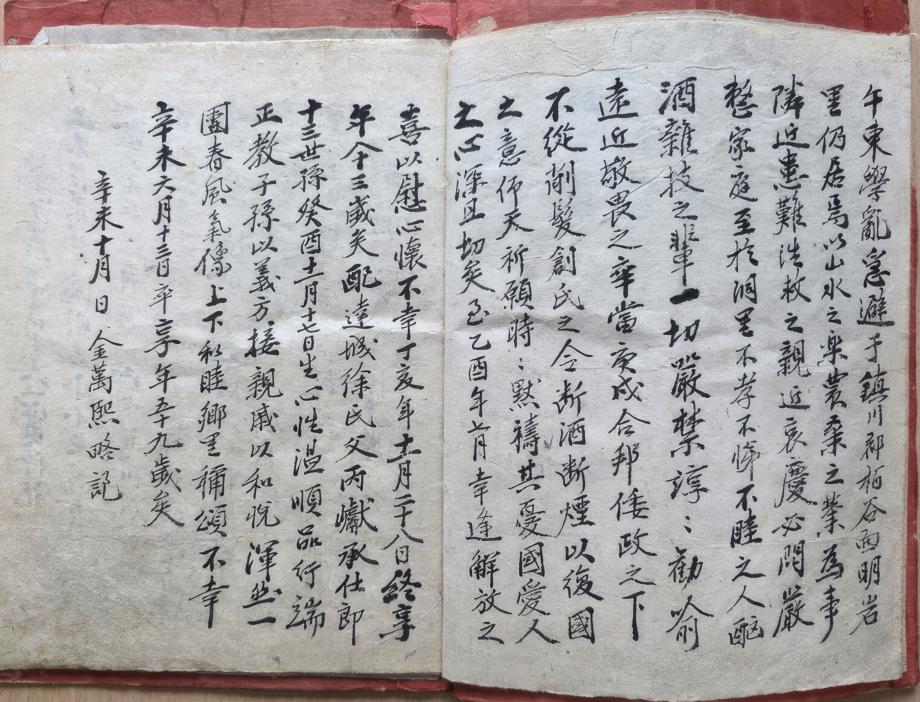 午東學亂急避于鎮川郡栢谷面明岩
里仍居焉以山水之楽農桑之業為事
隣近患難浩救之親近哀慶必問嚴
整家庭至於洞里不孝不悌不睦之人酗
酒雜技之輩一切嚴禁諄〻勸喻
遠近敬畏之卒當庚戌合邦倭政之下
不從削髮創氏之令断酒断煙以復國
之意仰天祈願時〻默禱其憂國愛人
之心深且切矣至乙酉年七月幸逢解放之
喜以慰心懷不幸丁亥年十一月二十八日終享
年八十三歲矣配達城徐氏父丙巘承仕郎
十三世孫癸酉十二月十七日生心性温順品行端
正教子孫以義方接親戚以和悅渾然一
團春風氣像上下和睦鄉里稱頌不幸
辛未六月十三日卒享年五十九歲矣
辛未十月日金萬熙略記